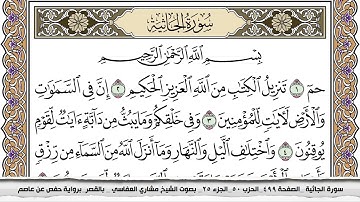 سُورَةُ الجَاثِيَةِ
بِسْمِ اللَّهِ الرَّحْمَٰنِ الرَّحِيمِ
حمٓ ١ تَنزِيلُ ٱلْكِتَٰبِ مِنَ ٱللَّهِ ٱلْعَزِيزِ ٱلْحَكِيمِ ٢ إِنَّ فِى ٱلسَّمَٰوَٰتِ
وَٱلْأَرْضِ لَءَايَٰتٍ لِّلْمُؤْمِنِينَ ٣ وَفِى خَلْقِكُمْ وَمَا يَبُثُّ مِن دَآبَّةٍ ءَايَٰتٌ لِّقَوْمٍ
يُوقِنُونَ ٤ وَٱخْتِلَٰفِ ٱلَّيْلِ وَٱلنَّهَارِ وَمَآ أَنزَلَ ٱللَّهُ مِنَ ٱلسَّمَآءِ مِن رِّزْقٍ
سورة الجاثية - الصفحة ٤٩٩ الحزب ٥٠ الجزء ٢٥ بصوت الشيخ مشاري العفاسي - بالقصر برواية حفص عن عاصم